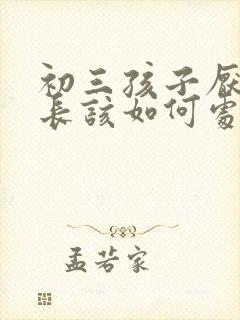 初三孩子厌
长该如何处
孟若家